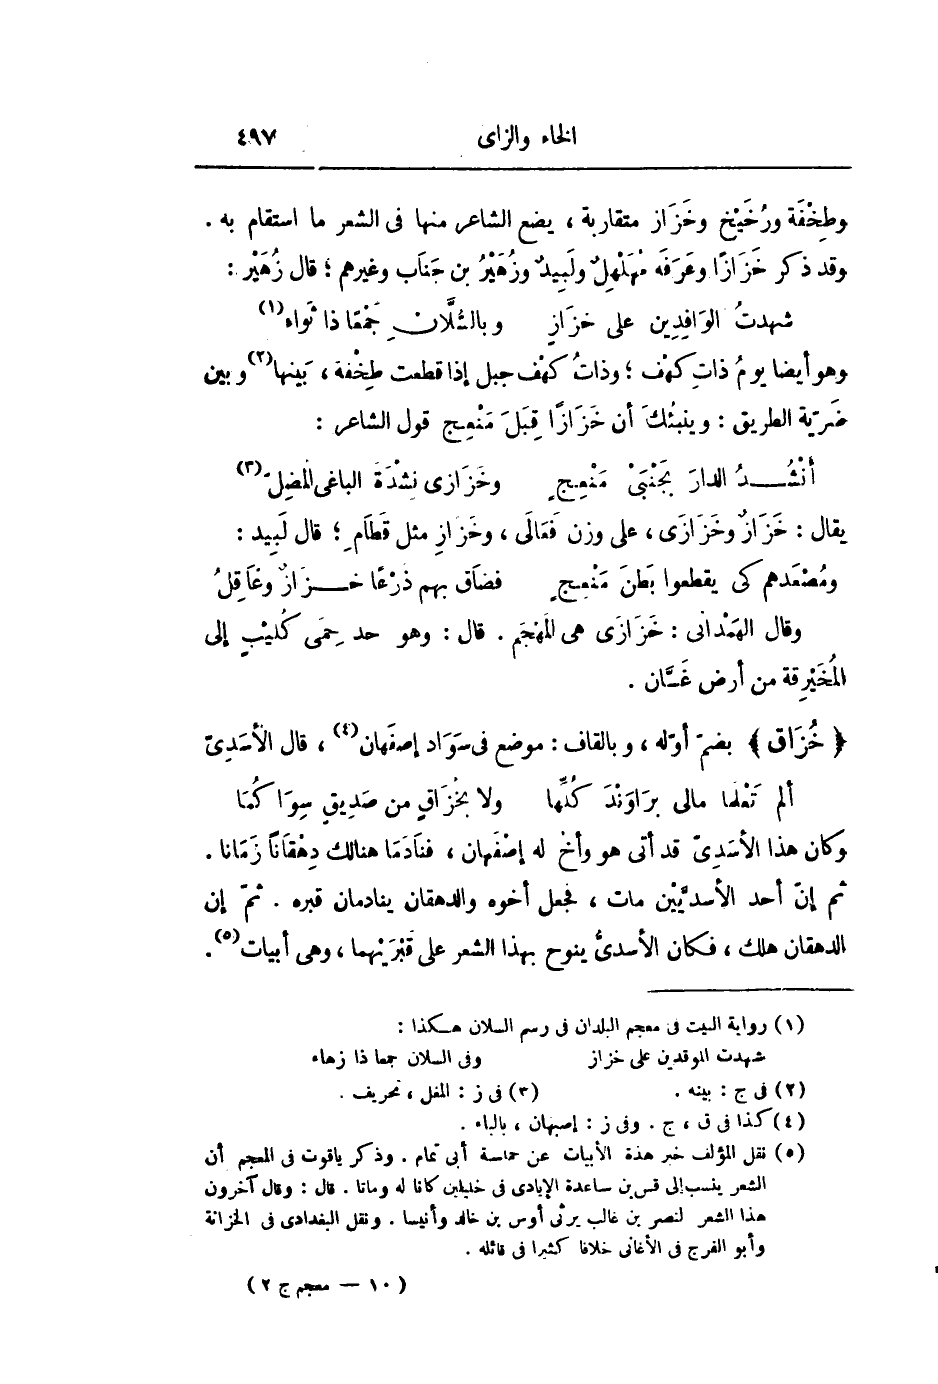 الخاء والزاى ٤٩٧
وطِخْفَة ورُخَيْخ وخَزَاز متقاربة ، يضع الشاعر منها فى الشعر ما استقام به .
وقد ذكر خَزَازًا وعَرَفَه مُهَلْهِلٌ ولَبِيدٌ وزُهَيْرُ بن جَنَاب وغيرهم ؛ قال زُهَيْر :
شهدتُ الوَافِدِين على خزَازِ وبالسُّلَّانِ جَمْعًا ذا ثَواء(١)
وهو أيضا يومُ ذاتِ كَهْف ؛ وذاتُ كَهْف جبل إذا قطعت طِخْفة ، بَينها(٢) وبين
ضَرِيّة الطريق : وينبئُكَ أن خَزَازًا قِبَلَ مَنْعِج قول الشاعر :
أنْشُـــدُ الدارَ بَجَنْبَىْ مَنْعِجٍ وخَزَازى نشْدَةَ الباغى المُضِلّ(٣)
يقال : خَزَازٌ وخَزَازَى ، على وزن فَعَالَى ، وخَزَازِ مثل قَطَامِ ؛ قال لَبِيد :
ومُصْعَدهم كى يقطعوا بَطنَ مَنْعِجٍ فضاَق بهم ذَرْعًا خـــزَازٌ وعَاقِلُ
وقال الهَمْدانى : خَزَازَى هى المَهْجَم . قال : وهو حد حِمَى كُلَيْبٍ إلى
المُخَيْرِقة من أرض غَسَّان .
﴿ خُزَاق ﴾ بضمّ أوّله ، وبالقاف : موضع فى سَوَاد إصفَهان(٤) ، قال الأسَدِىّ
ألم تَعْلَما مالى برَاوَنْدَ كُلِّها ولا بخُزَاقٍ من صَدِيقٍ سِوَاكُمَا
وكان هذا الأسَدِىّ قد أتى هو وأخٌ له إصْفَهان ، فنَادَمَا هنالك دِهْقَانًا زَمَانا .
ثم إنّ أحد الأسديَّيْن مات ، فجعل أخوه والدهقان ينادمان قبره . ثمّ إن
الدهقان هلك ، فكان الأسدىُّ ينوح بهذا الشعر على قَبْرَيْهما ، وهى أبيات(٥) .
(١) رواية البيت فى معجم البلدان فى رسم السلان هكذا :
شهدت الموقدين على خزاز وفى السلان جمعا ذا زهاء
(٢) فى ج : بينه . (٣) فى ز : المفل ، تحريف .
(٤) كذا فى ق ، ج . وفى ز : إصبهان ، بالباء .
(٥) نقل المؤلف خبر هذة الأبيات عن حماسة أبى تمام . وذكر ياقوت فى المعجم أن
الشعر ينسب إلى قس بن ساعدة الإيادى فى خليلين كانا له وماتا . قال : وقال آخرون
هذا الشعر لنصر بن غالب يرثى أوس بن خالد وأنيسا . ونقل البغدادى فى الخزانة
وأبو الفرج فى الأغانى خلافا كثيرا فى قائله .
(١٠ — معجم ج ٢)